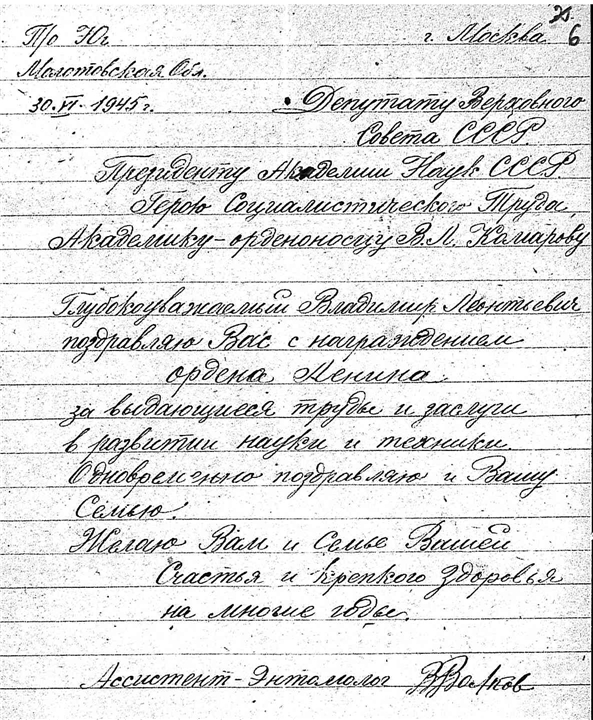 П/о Юг г. Москва 6
Молотовская Обл.
30.VI.1945 г. Депутату Верховного
Совета СССР.
Президенту Академии Наук СССР
Герою Социалистического Труда,
Академику-орденоносцу В.Л. Комарову
Глубокоуважаемый Владимир Леонтьевич
поздравляю Вас с награждением
ордена Ленина
за выдающиеся труды и заслуги
в развитии науки и техники.
Одновременно поздравляю и Вашу
Семью.
Желаю Вам и Семье Вашей
Счастья и крепкого здоровья
на многие годы.
Ассистент-Энтомолог ВВолков